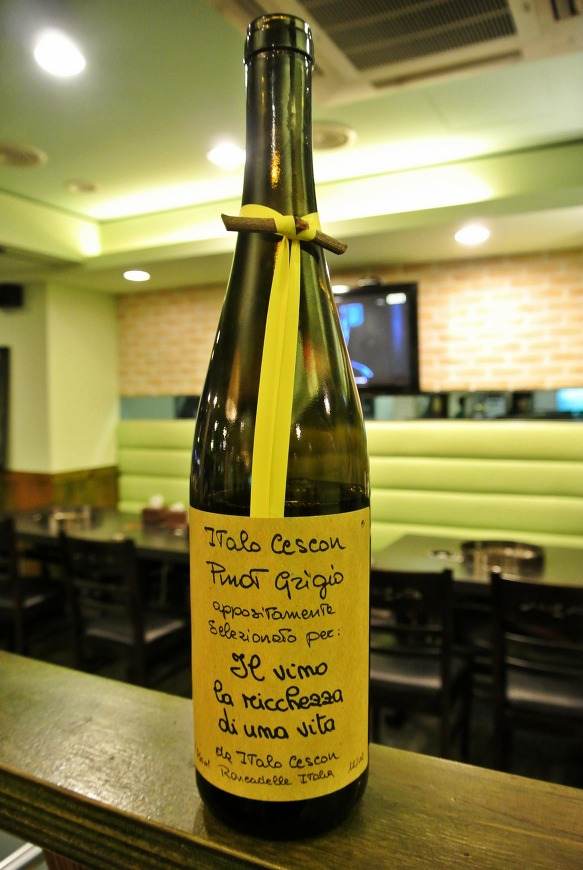 Italo Cescon
Pinot Grigio
appositamente
selezionato per:
Il vino
la ricchezza
di una vita
da Italo Cescon
Roncadelle Italia